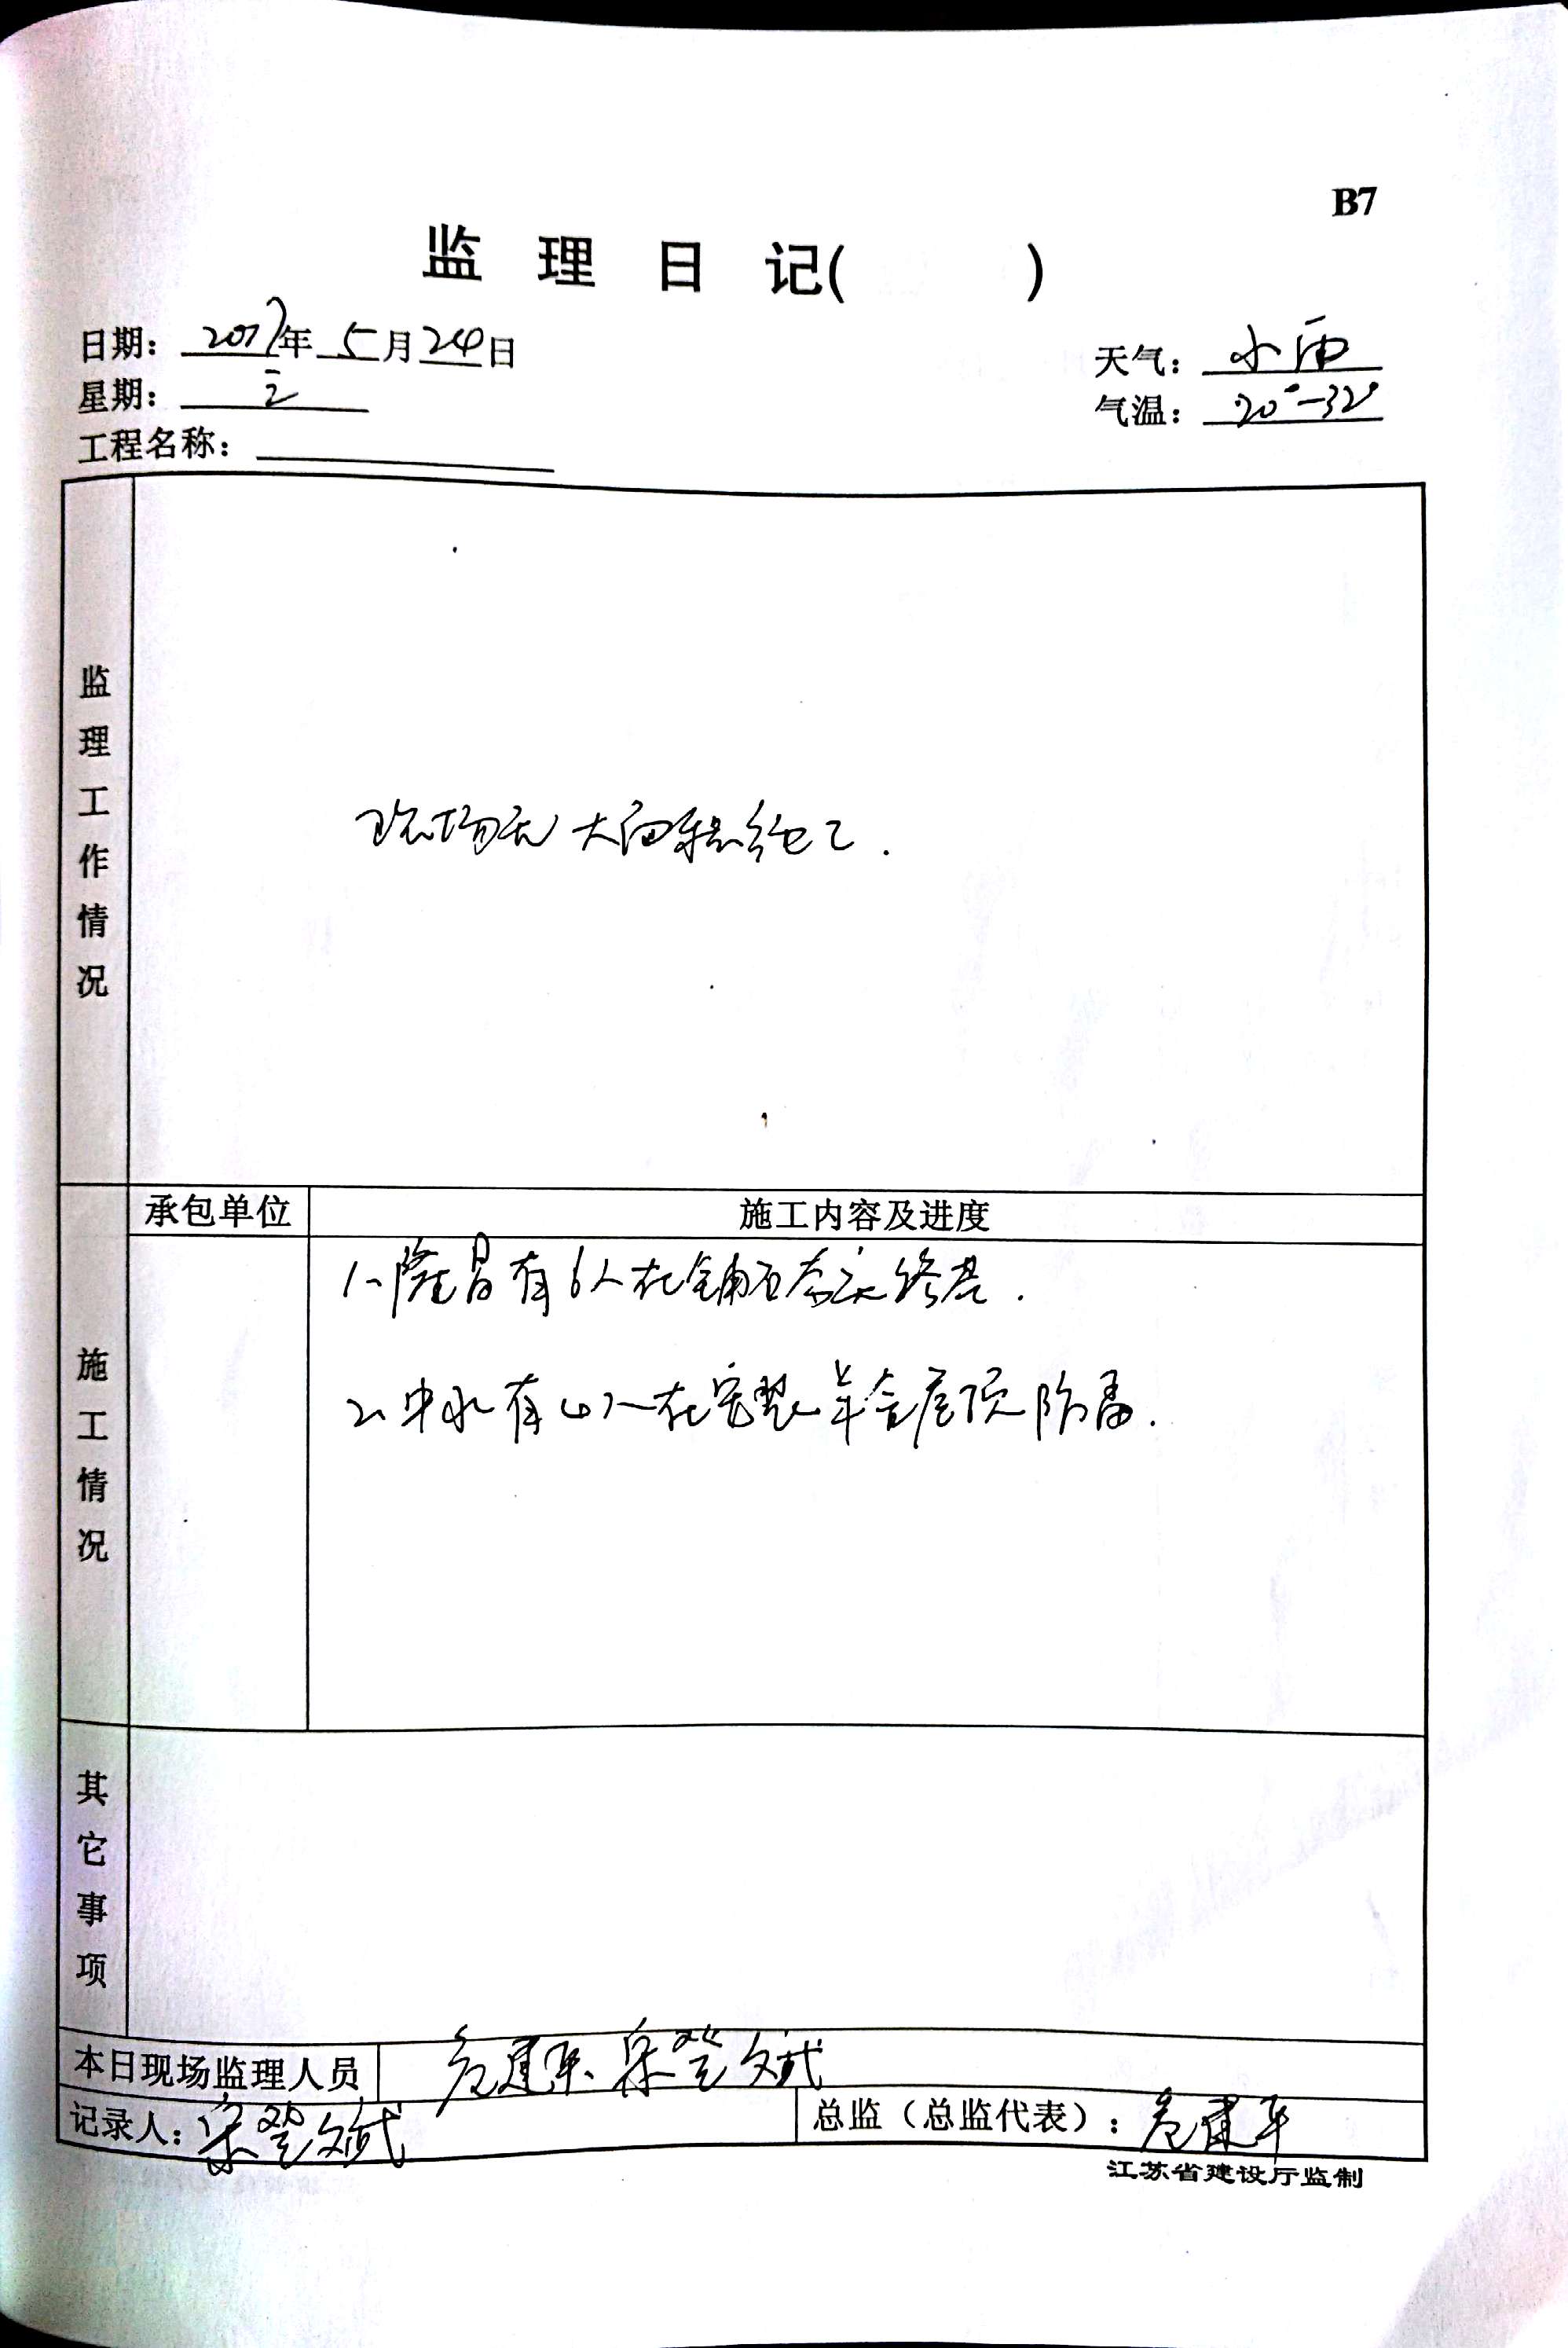 B7
监 理 日 记( )
日期: 2017年 5月24日
天气: 小雨
星期: 三
气温: 20°-32°
工程名称:
监理工作情况
现场无大面积施工.
承包单位
施工内容及进度
施工情况
1、隆昌有6人在铺
2、中 有 人在安装羊舍屋顶防
其它事项
本日现场监理人员
建平、 登文斌
记录人: 登文斌
总监(总监代表): 建平
江苏省建设厅监制